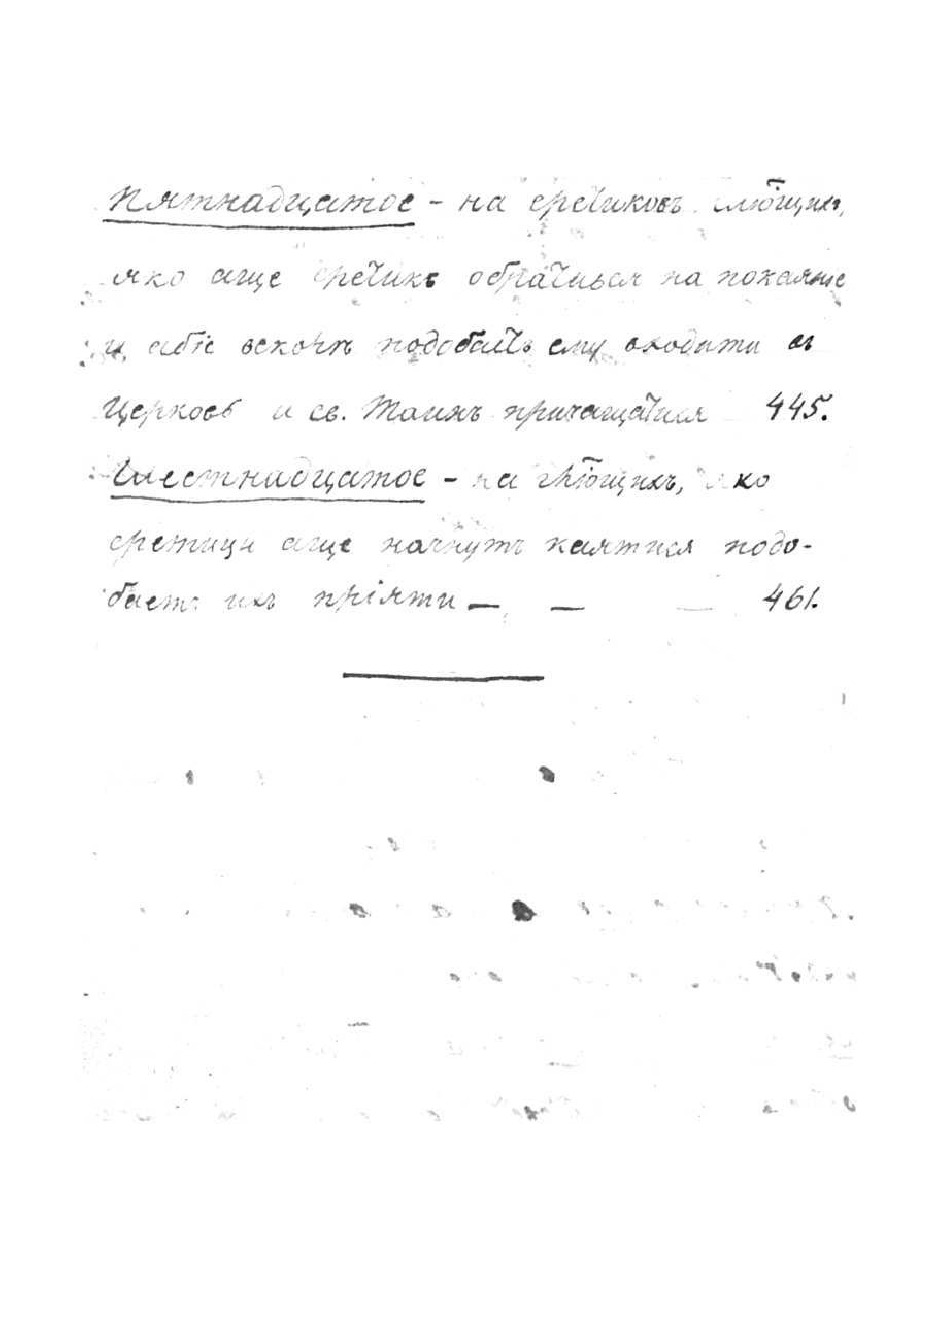 Пятнадцатое - на еретиковъ глющихъ,
яко аще еретикъ обратиться на покаяние
и абіе вскорѣ подобаетъ ему входити въ
Церковь и св. Таинъ причащатися 445.
Шестнадцатое - на глющихъ, яко
еретици аще начнутъ каятися подо-
баетъ ихъ пріяти — — — 461.